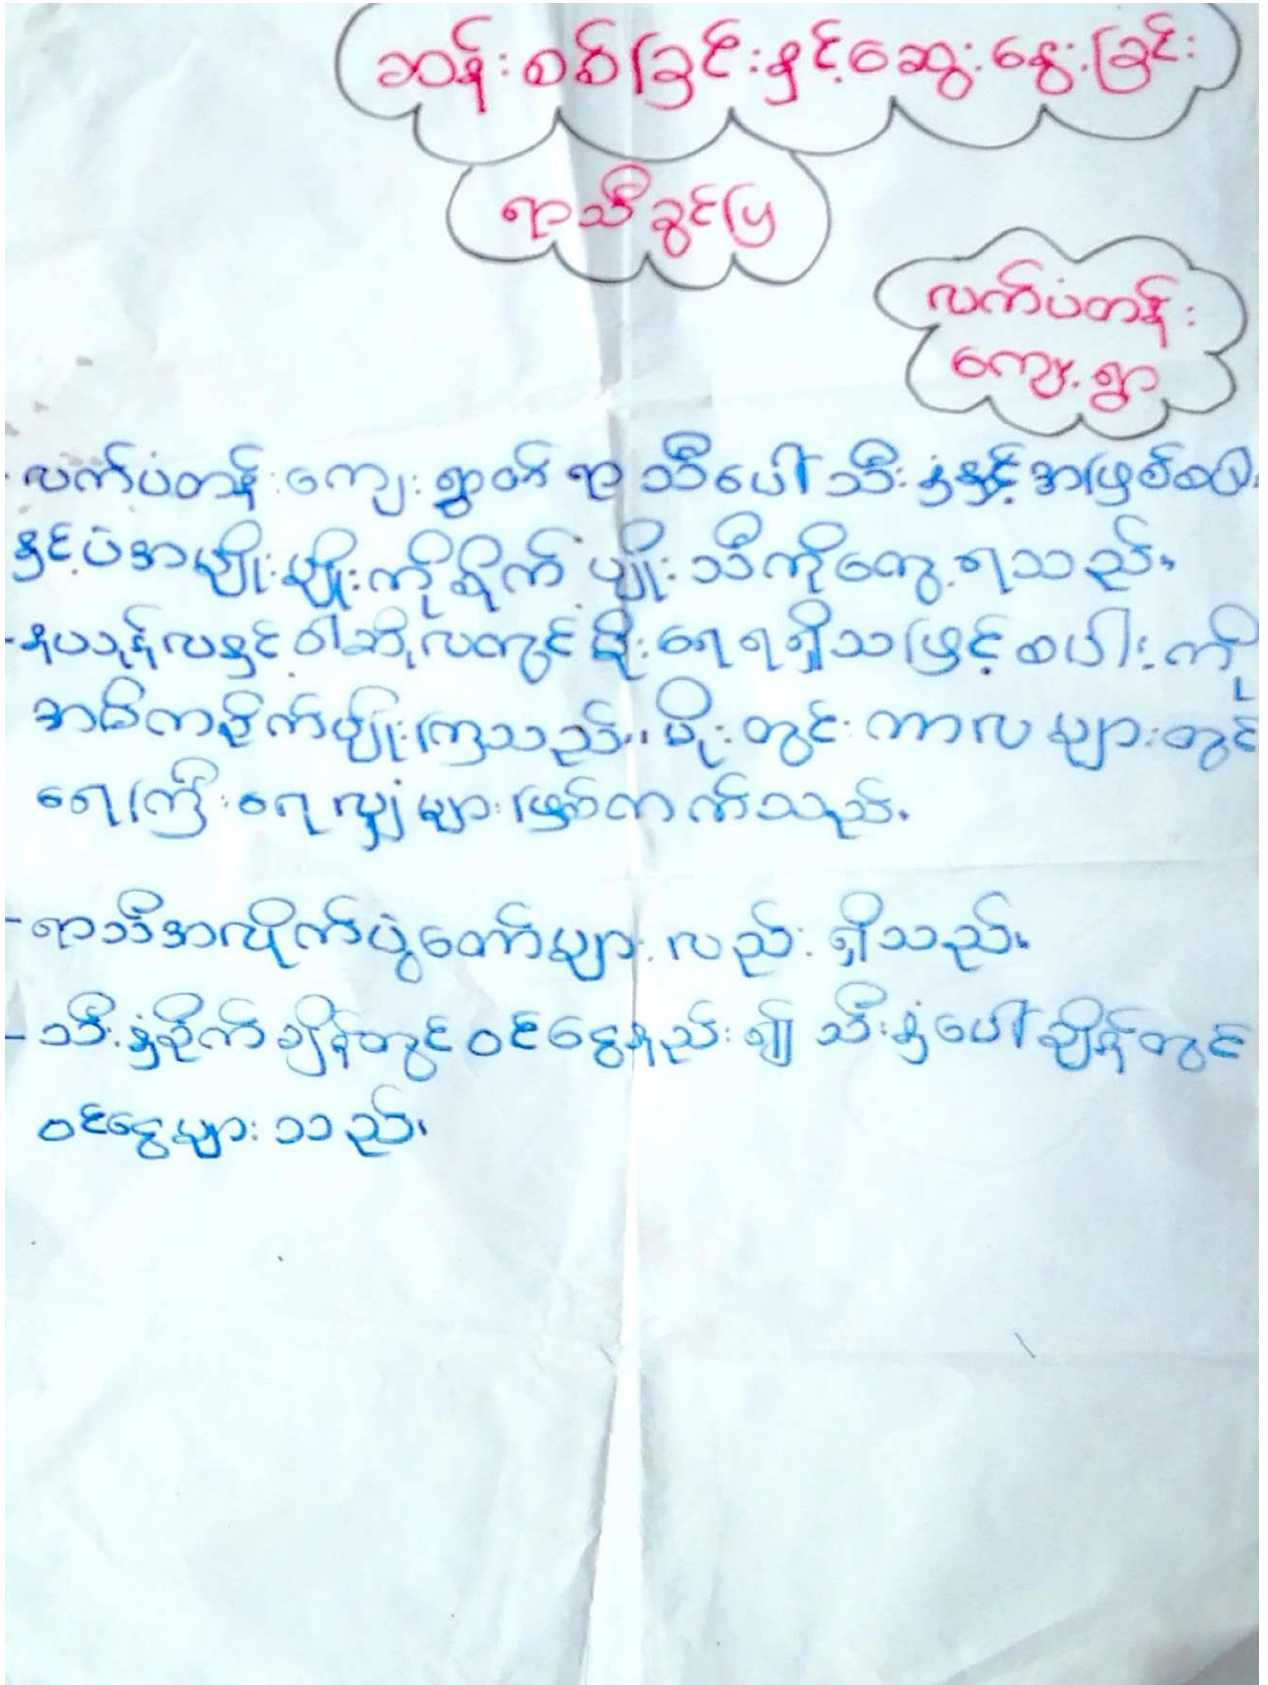 ဆန်းစစ်ခြင်းနှင့်ဆွေးနွေးခြင်း
ရာသီခွင်ပြ
လက်ပံတန်း
ကျေးရွာ
- လက်ပံတန်းကျေးရွာတွင် ရာသီပေါ်သီးနှံနှင့် အဖြစ်စပါး
နှင့်ပဲအမျိုးမျိုးကိုစိုက်ပျိုးသီကိုတွေ့ရသည်။
- နယုန်လနှင့်ဝါဆိုလတွင် မိုးရေရရှိသဖြင့် စပါးကို
အဓိကစိုက်ပျိုးကြသည်။ မိုးတွင်းကာလများတွင်
ရေကြီးရေလျှံများဖြစ်တက်သည်။
- ရာသီအလိုက်ပွဲတော်များလည်းရှိသည်။
- သီးနှံစိုက်ချိန်တွင်ဝင်ငွေနည်း၍ သီးနှံပေါ်ချိန်တွင်
ဝင်ငွေများသည်။